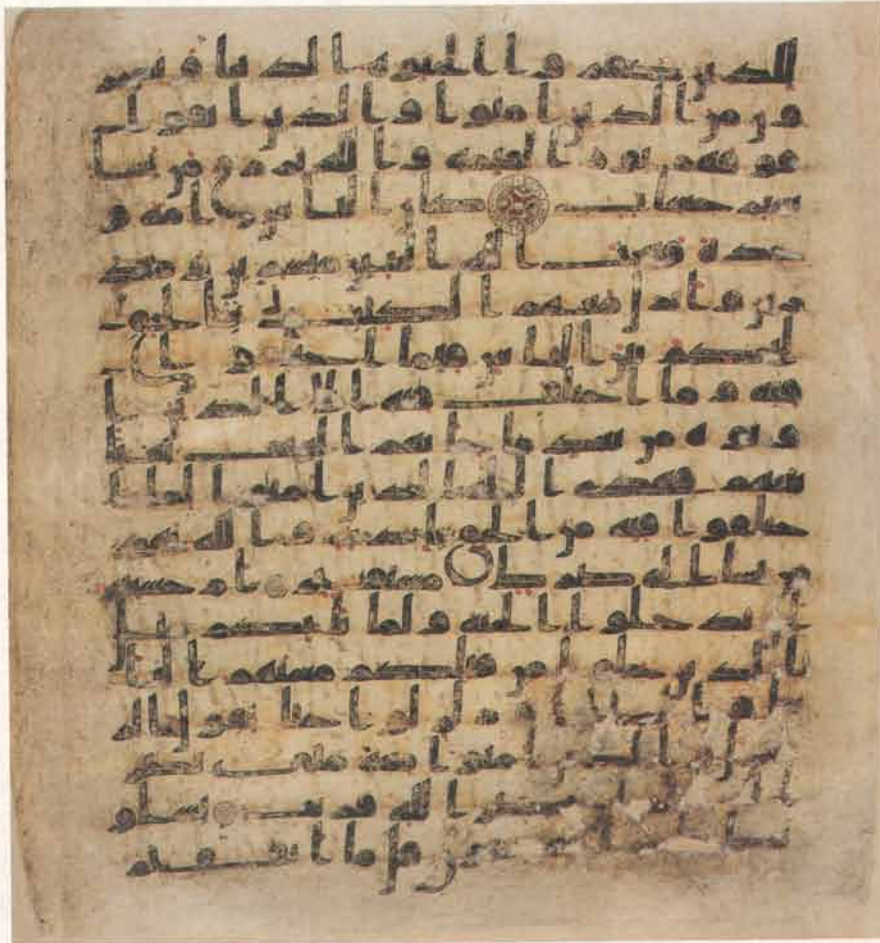 للذين كفروا الحيوة الدنيا ويسخر
ون من الذين امنوا والذين اتقوا
فوقهم يوم القيمة والله يرزق من يشا
بغير حساب كان الناس امة و
حدة فبعث الله النبين مبشرين ومنذ
رين وانزل معهم الكتب بالحق
ليحكم بين الناس فيما اختلفوا
فيه وما اختلف فيه الا الذين ا
وتوه من بعد ما جاتهم البينت بغيا
بينهم فهدى الله الذين امنوا لما ا
ختلفوا فيه من الحق باذنه والله يهدي
من يشا الى صرط مستقيم ام حسبتم
ان تدخلوا الجنة ولما ياتكم مثل
الذين خلوا من قبلكم مستهم البا
سا والضرا وزلزلوا حتى يقول ا
لرسول والذين امنوا معه متى نصر
الله الا ان نصر الله قريب يسلو
نك ماذا ينفقون قل ما انفقتم